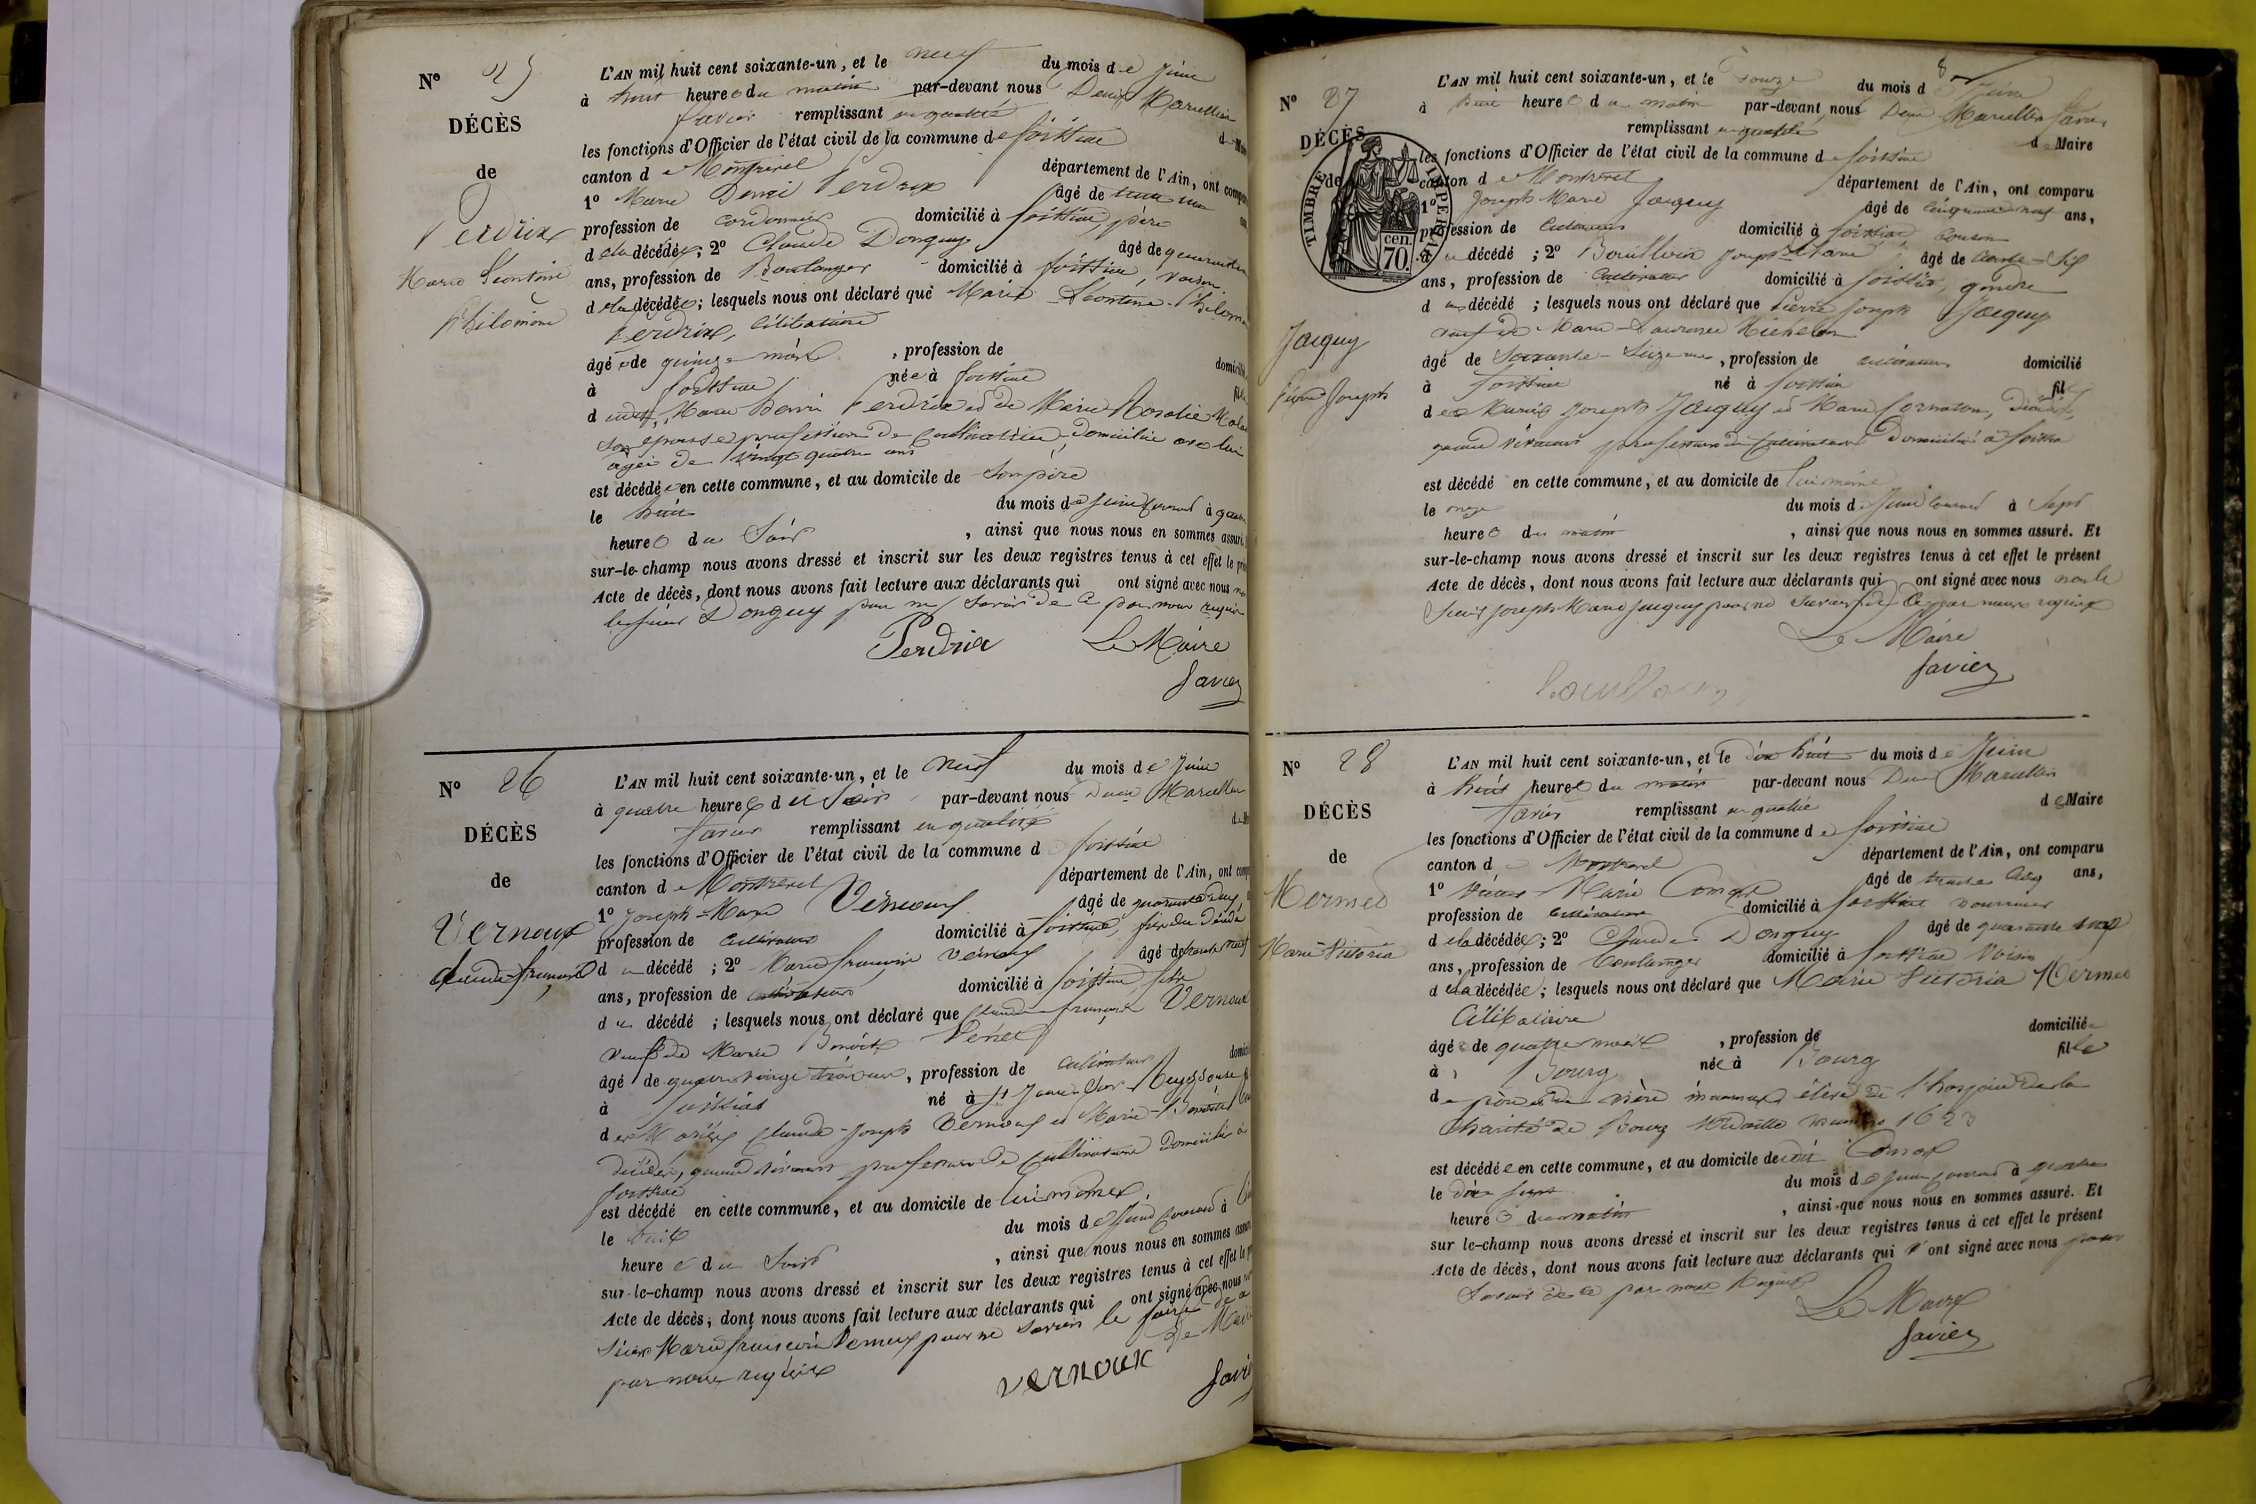 N° 25
DÉCÈS
de
Perdrix
Marie Léontine
Philomène
L'AN mil huit cent soixante-un, et le neuf du mois de Juin
à huit heures du matin par-devant nous Denis Marcellin
Favier remplissant en qualité de
les fonctions d'Officier de l'état civil de la commune de foissiat
canton de Montrevel département de l'Ain, ont
1° Marie Henri Perdrix âgé de trente un
profession de cordonnier domicilié à foissiat, père
de la décédée; 2° Claude Donguy âgé de
ans, profession de Boulanger domicilié à foissiat voisin
de la décédée; lesquels nous ont déclaré que Marie Léontine Philomène
Perdrix, célibataire
âgée de quinze mois, profession de
à foissiat née à foissiat
Marie henri Perdrix et de Marie Rosalie
son épouse profession de Cultivatrice domiciliée avec lui
âgée de vingt quatre ans
est décédée en cette commune, et au domicile de Son père
le huit du mois de Juin courant à
heures du Soir, ainsi que nous nous en sommes assuré.
sur-le-champ nous avons dressé et inscrit sur les deux registres tenus à cet effet le
Acte de décès, dont nous avons fait lecture aux déclarants qui ont signé avec nous
le sieur Donguy pour ne Savoir de ce par nous requis
Perdrix Le Maire
Favier
N° 26
DÉCÈS
de
Vernoux
Claude-françois
L'AN mil huit cent soixante-un, et le neuf du mois de Juin
à quatre heures du Soir par-devant nous Denis Marcellin
Favier remplissant en qualité
les fonctions d'Officier de l'état civil de la commune de foissiat
canton de Montrevel département de l'Ain, ont
1° Joseph-Marie Vernoux âgé de quarante
profession de Cultivateur domicilié à foissiat, fils du décédé
du décédé; 2° Marie françois Vernoux âgé de trente neuf
ans, profession de cultivateur domicilié à foissiat, fils
du décédé; lesquels nous ont déclaré que Claude-françois Vernoux
veuf de Marie Benoite
âgé de quatre vingt trois ans, profession de cultivateur
à foissiat né à St Jean-Sur-Reyssouze
Claude-Joseph Vernoux et Marie-
décédés, quand vivaient profession de Cultivateurs domiciliés à
foissiat
est décédé en cette commune, et au domicile de lui même
le huit du mois de Juin courant à
heures du Soir, ainsi que nous nous en sommes
sur-le-champ nous avons dressé et inscrit sur les deux registres tenus à cet effet le
Acte de décès, dont nous avons fait lecture aux déclarants qui ont signé avec nous
sieur Marie françois Vernoux pour ne savoir le faire de ce
par nous requis Le Maire
vernoux Favier
N° 27
DÉCÈS
de
TIMBRE IMPÉRIAL
70 cen.
Jacquy
Pierre Joseph
L'AN mil huit cent soixante-un, et le Douze du mois de Juin
à heures du matin par-devant nous Denis Marcellin Favier
remplissant en qualité de Maire
les fonctions d'Officier de l'état civil de la commune de foissiat
canton de Montrevel département de l'Ain, ont comparu
1° Joseph Marie Jacquy âgé de cinquante neuf ans,
profession de Cultivateur domicilié à foissiat cousin
du décédé; 2° Bouilloux Joseph-Marie âgé de trente-Six
ans, profession de Cultivateur domicilié à foissiat, gendre
du décédé; lesquels nous ont déclaré que Pierre Joseph Jacquy
veuf de Marie-Laurence Michelon
âgé de Soixante-Seize ans, profession de cultivateur domicilié
à foissiat né à foissiat fils
Joseph Jacquy et Marie Cornaton,
quand vivaient profession de Cultivateurs domiciliés à foissiat
est décédé en cette commune, et au domicile de lui même
le onze du mois de Juin courant à Sept
heures du matin, ainsi que nous nous en sommes assuré. Et
sur-le-champ nous avons dressé et inscrit sur les deux registres tenus à cet effet le présent
Acte de décès, dont nous avons fait lecture aux déclarants qui ont signé avec nous non le
Sieur Joseph Marie Jacquy pour ne Savoir de Ce par nous requis
Le Maire
Favier
N° 28
DÉCÈS
de
Mermes
Marie Victoria
L'AN mil huit cent soixante-un, et le dix huit du mois de Juin
à huit heures du matin par-devant nous Denis Marcellin
Favier remplissant en qualité de Maire
les fonctions d'Officier de l'état civil de la commune de foissiat
canton de Montrevel département de l'Ain, ont comparu
1° Marie Comas âgé de trente cinq ans,
profession de Cultivateur domicilié à foissiat nourricier
de la décédée; 2° Claude Donguy âgé de quarante
ans, profession de Boulanger domicilié à foissiat Voisin
de la décédée; lesquels nous ont déclaré que Marie Victoria Mermes
Célibataire
âgée de quatre mois, profession de domiciliée
à Bourg née à Bourg fille
de père et de mère inconnus élève de l'hospice de la
Charité de Bourg Médaille numéro 1623
est décédée en cette commune, et au domicile dudit Comas
le dix sept du mois de Juin courant à quatre
heures du matin, ainsi que nous nous en sommes assuré. Et
sur-le-champ nous avons dressé et inscrit sur les deux registres tenus à cet effet le présent
Acte de décès, dont nous avons fait lecture aux déclarants qui n'ont signé avec nous pour
Savoir de ce par nous Requis
Le Maire
Favier